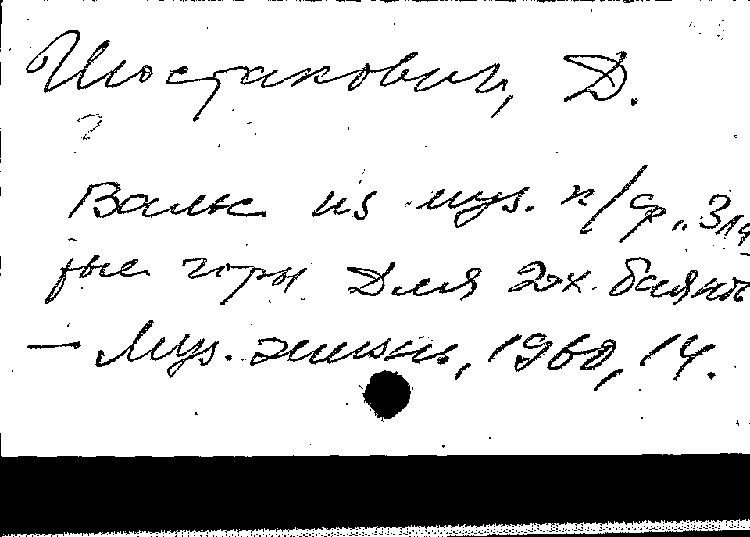 Шостакович, Д.
?
Вальс из муз. к/ф „Зла
тые горы Для 2ух. баянов
— Муз. жизнь, 1960, 14.